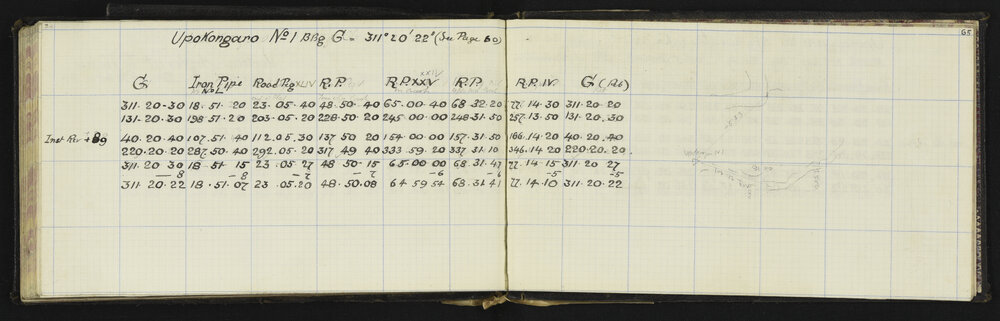 65
Upokongaro No 1 BBg G = 311° 20' 22" (See Page 60)
G Iron Pipe Road Peg XLIV R.P. R.P. XXV R.P. R.P. IV G (Ab)
No 1 XXIV
311.20-30 18.51.20 23.05.40 48.50.40 65.00.40 68.32.20 77.14.30 311.20.20
131.20.30 198.51.20 203.05.20 228.50.20 245.00.00 248.31.50 257.13.50 131.20.30
Inst Rev + Bg 40.20.40 107.51.40 112.05.30 137.50.20 154.00.00 157.31.50 166.14.20 40.20.40
220.20.20 287.50.40 292.05.20 317.49.40 333.59.20 337.31.10 346.14.20 220.20.20
311.20.30 18.51.15 23.05.27 48.50-15 65.00.00 68.31.47 77.14.15 311.20.27
-8 -8 -7 -7 -6 -6 -5 -5
311.20.22 18.51.07 23.05.20 48.50.08 64.59.54 68.31.41 77.14.10 311.20.22